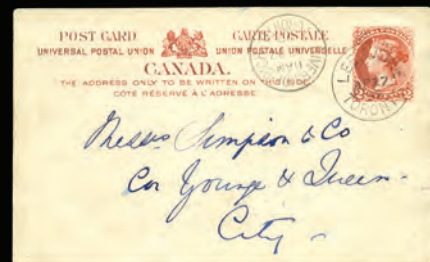 POST CARD CARTE POSTALE
UNIVERSAL POSTAL UNION UNION POSTALE UNIVERSELLE
CANADA.
THE ADDRESS ONLY TO BE WRITTEN ON THIS SIDE
CÔTÉ RÉSERVÉ À L'ADRESSE
TORONTO
Messrs Simpson & Co
Cor Younge & Queen
City